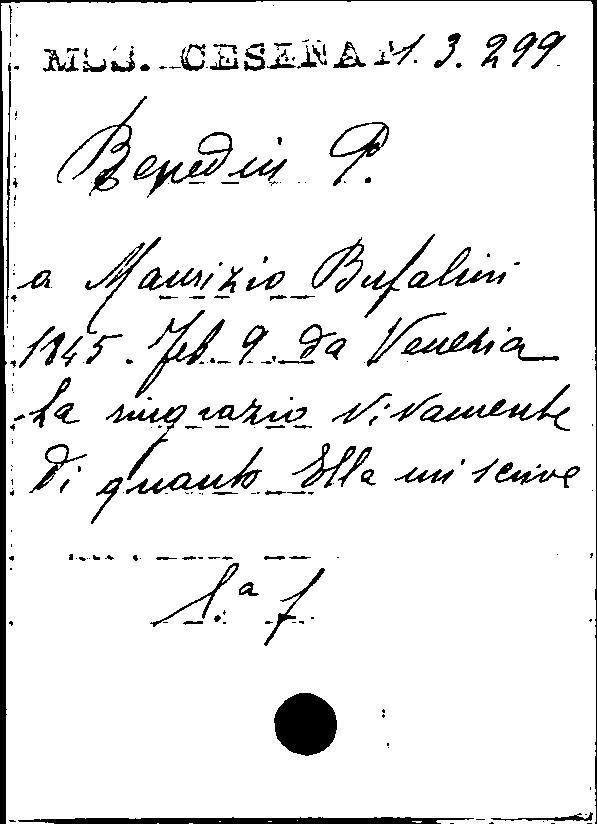 MSS. CESENA M. 3. 299
Benedein P.
a Maurizio Bufalini
1845. Feb. 9. da Venezia
La ringrazio vivamente
di quanto Ella mi scrive
l.a f